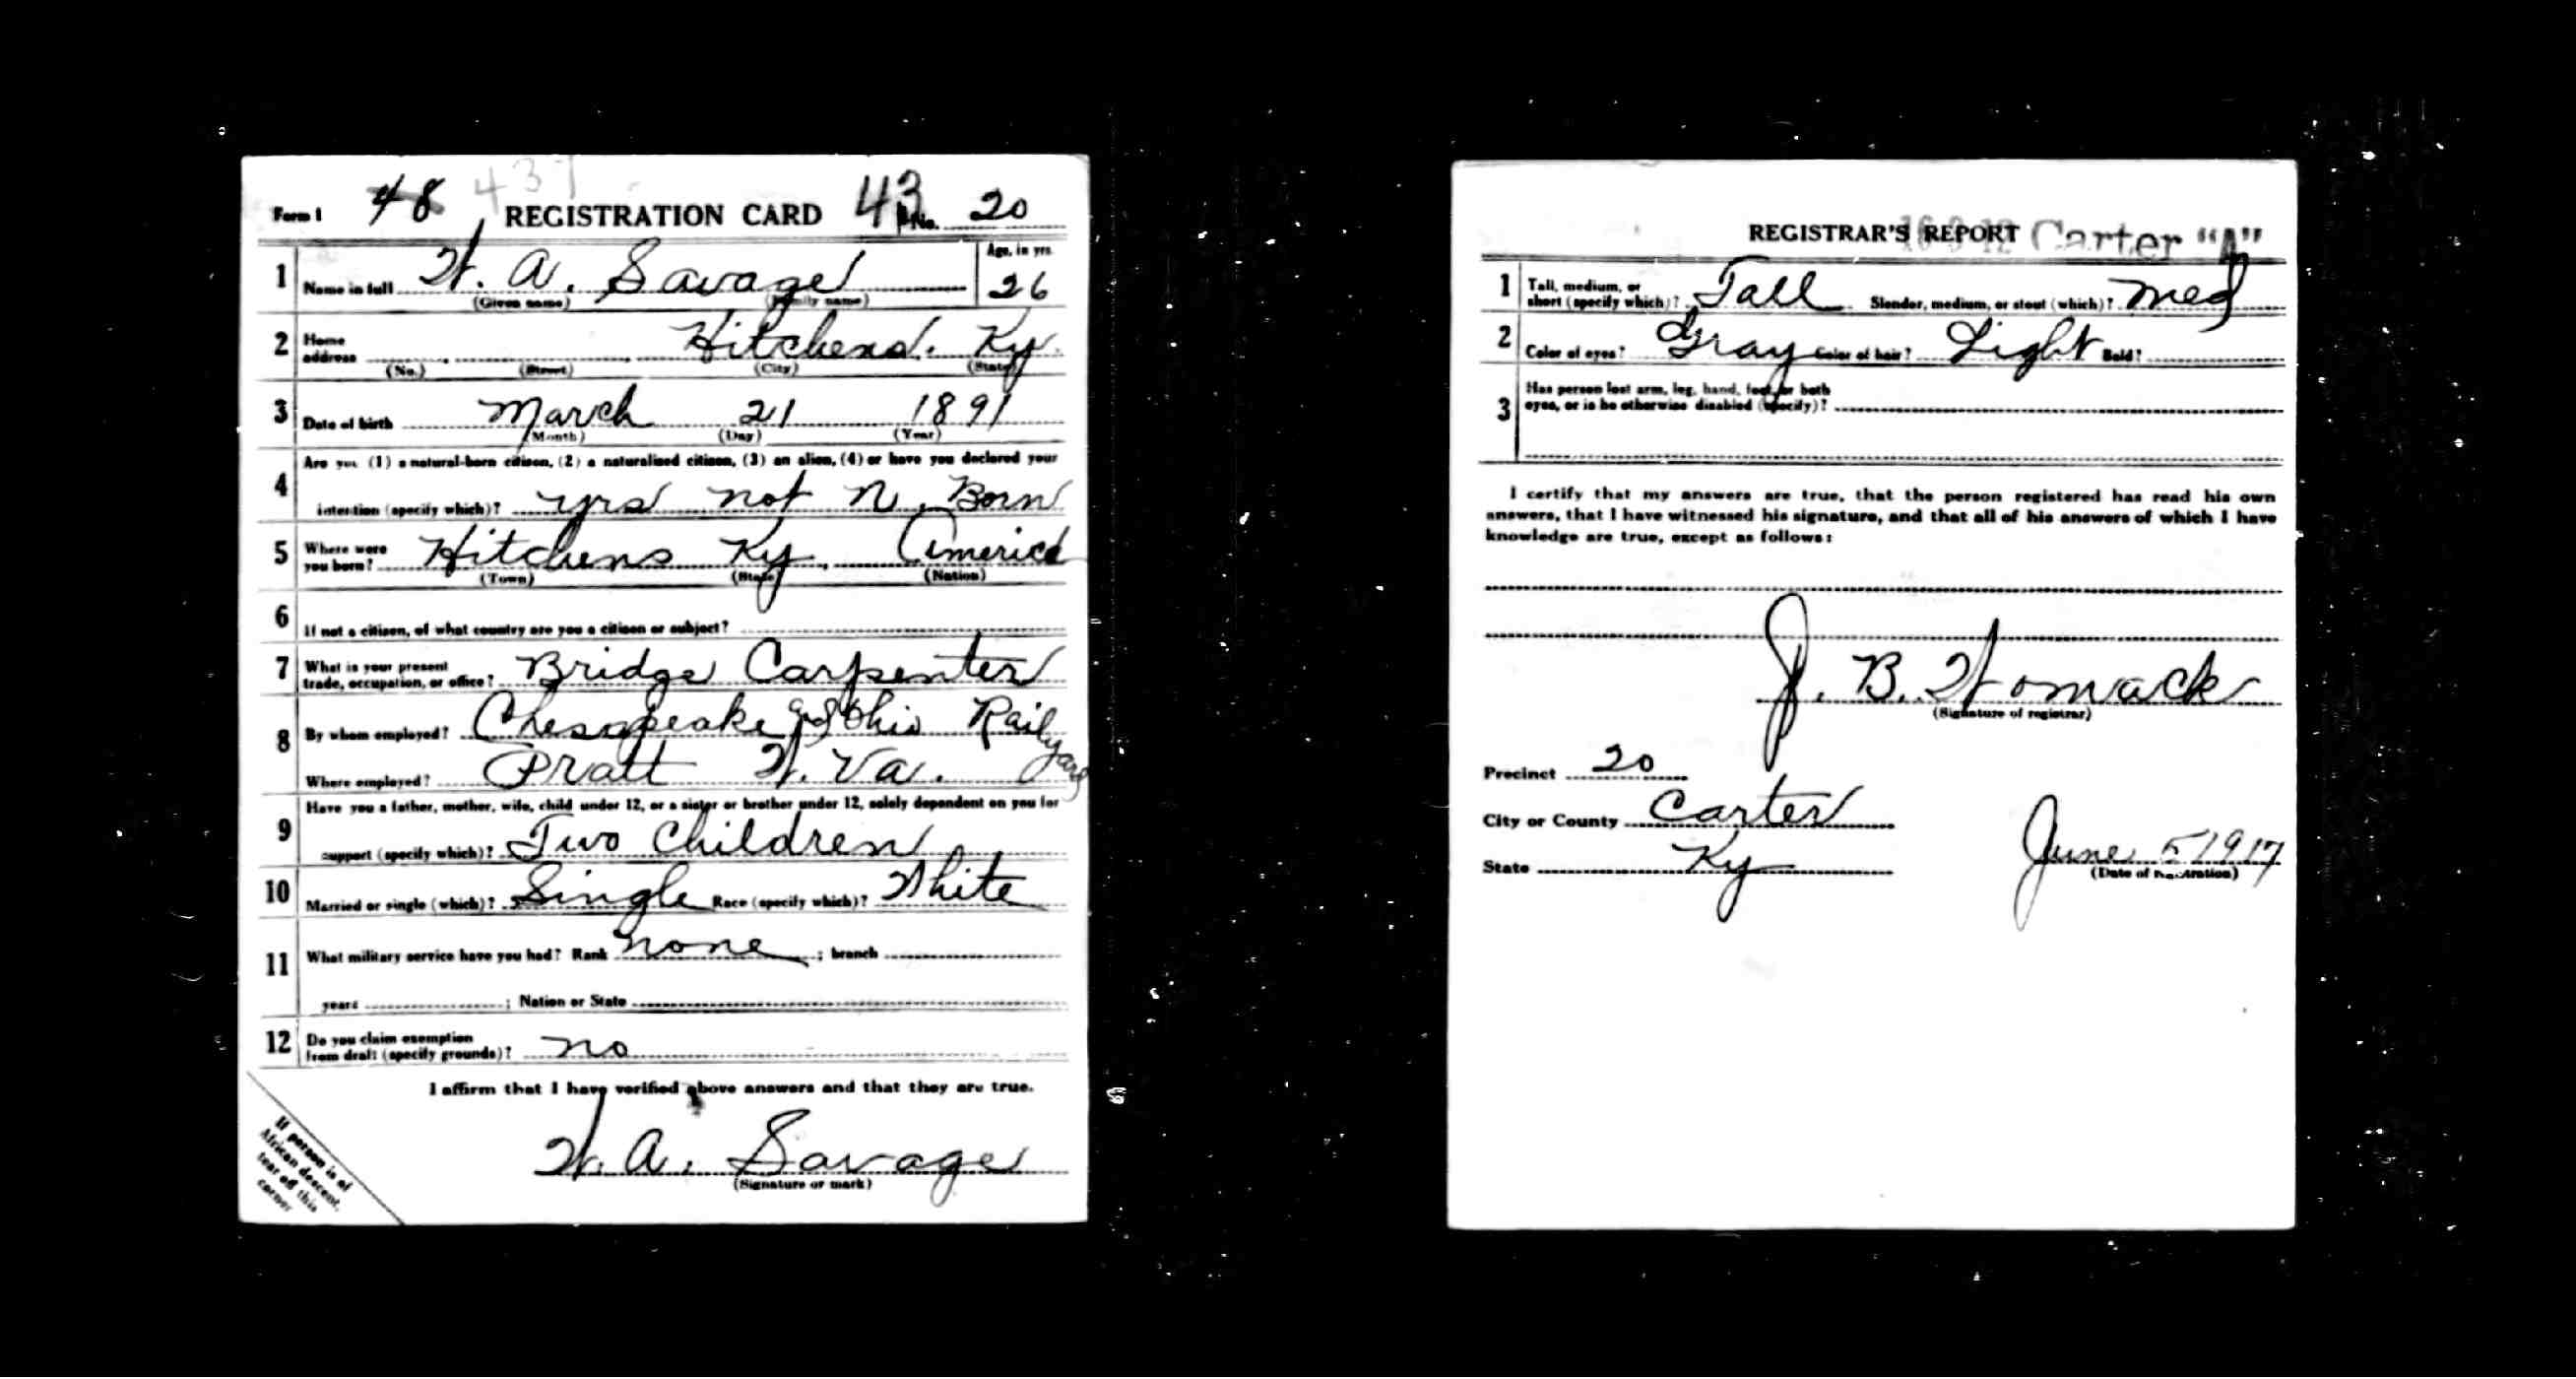 Form 1 48 437 REGISTRATION CARD 43 No. 20
1 Name in full W. A. Savage Age, in yrs. 26
(Given name) (Family name)
2 Home address Hitchens. Ky.
(No.) (Street) (City) (State)
3 Date of birth March 21 1891
(Month) (Day) (Year)
4 Are you (1) a natural-born citizen, (2) a naturalized citizen, (3) an alien, (4) or have you declared your
intention (specify which)? yrs not N. Born
5 Where were you born? Hitchens Ky., America
(Town) (State) (Nation)
6 If not a citizen, of what country are you a citizen or subject?
7 What is your present trade, occupation, or office? Bridge Carpenter
8 By whom employed? Chesapeake and Ohio Rail yard
Where employed? Pratt W. Va.
9 Have you a father, mother, wife, child under 12, or a sister or brother under 12, solely dependent on you for
support (specify which)? Two Children
10 Married or single (which)? Single Race (specify which)? White
11 What military service have you had? Rank none; branch
years; Nation or State
12 Do you claim exemption from draft (specify grounds)? no
I affirm that I have verified above answers and that they are true.
W. A. Savage
(Signature or mark)
If person is of
African descent,
tear off this
corner
REGISTRAR'S REPORT Carter "A"
1 Tall, medium, or short (specify which)? Tall Slender, medium, or stout (which)? med
2 Color of eyes? Gray Color of hair? Light Bald?
3 Has person lost arm, leg, hand, foot, or both
eyes, or is he otherwise disabled (specify)?
I certify that my answers are true, that the person registered has read his own
answers, that I have witnessed his signature, and that all of his answers of which I have
knowledge are true, except as follows:
J. B. Womack
(Signature of registrar)
Precinct 20
City or County Carter
State Ky
June 5 1917
(Date of registration)